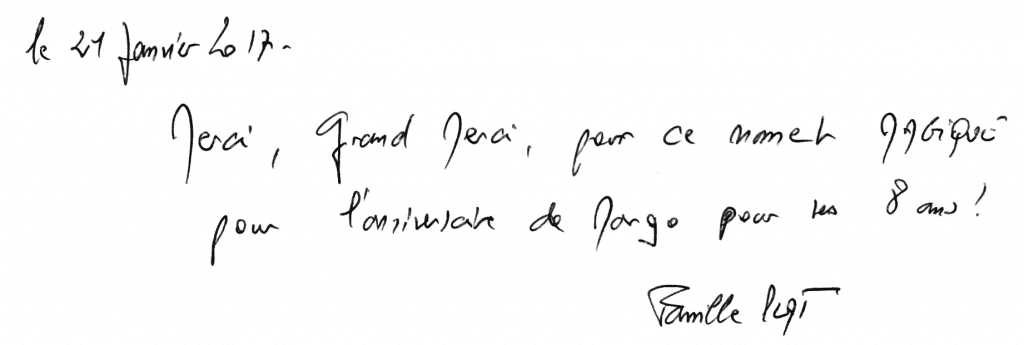 le 21 Janvier 2017.
Merci, Grand Merci, pour ce moment MAGIQUE
pour l'anniversaire de Margo pour ses 8 ans!
Famille